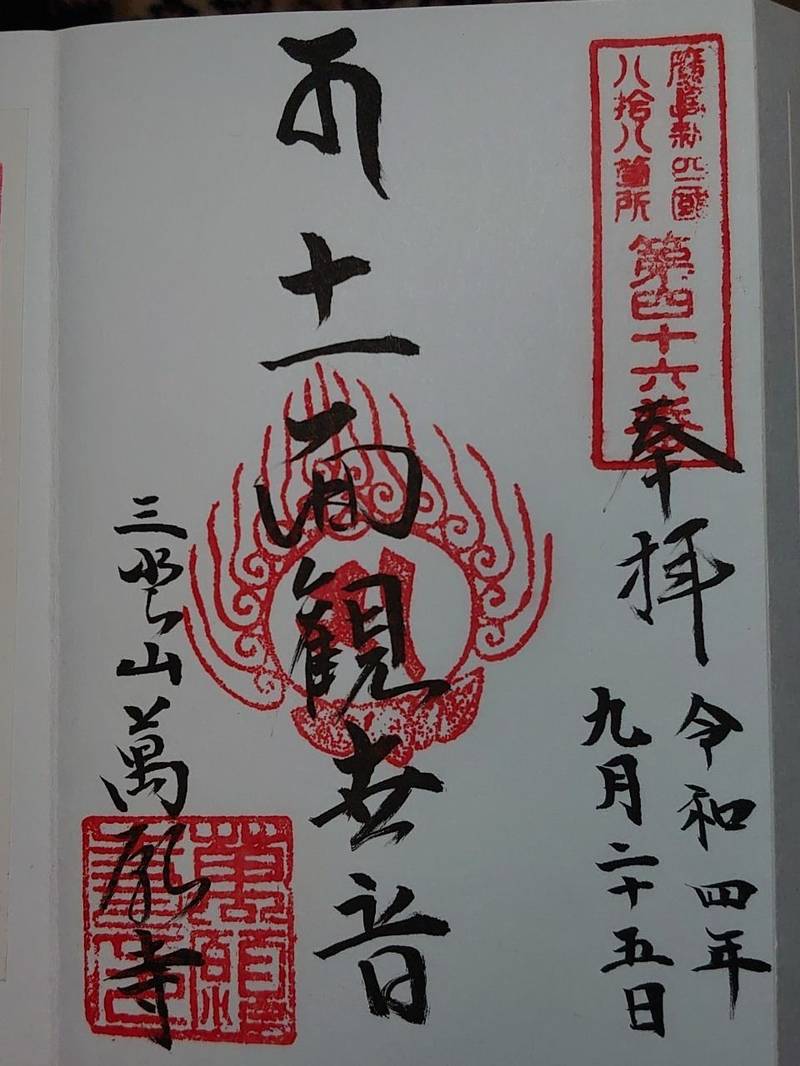 廣島新四國
八拾八箇所
第四十六番
奉拝
令和四年
九月二十五日
十一面観世音
山萬願寺
萬願